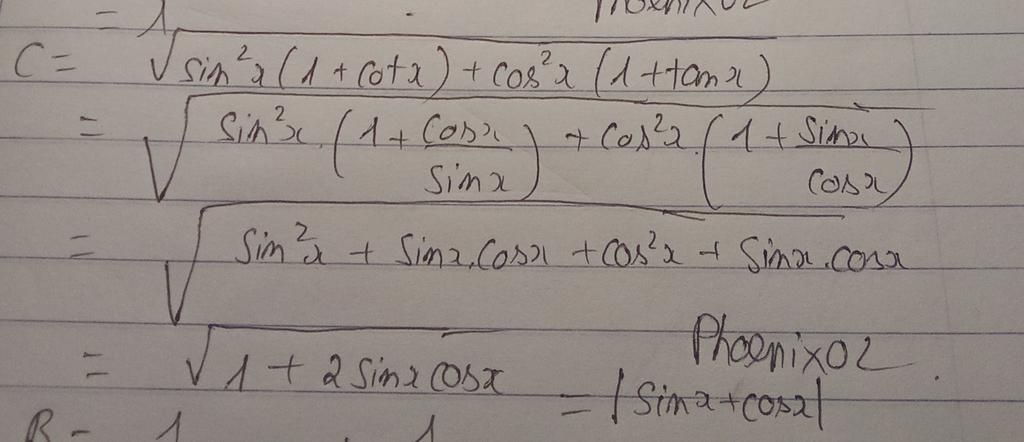 = 1
Phoenix02
C = √(sin²x(1 + cotx) + cos²x (1 + tanx))
= √(sin²x.(1 + cosx/sinx) + cos²x.(1 + sinx/cosx))
= √(sin²x + sinx.cosx + cos²x + sinx.cosx)
= √(1 + 2sinxcosx) = |sinx+cosx|
Phoenix02
B = 1 1